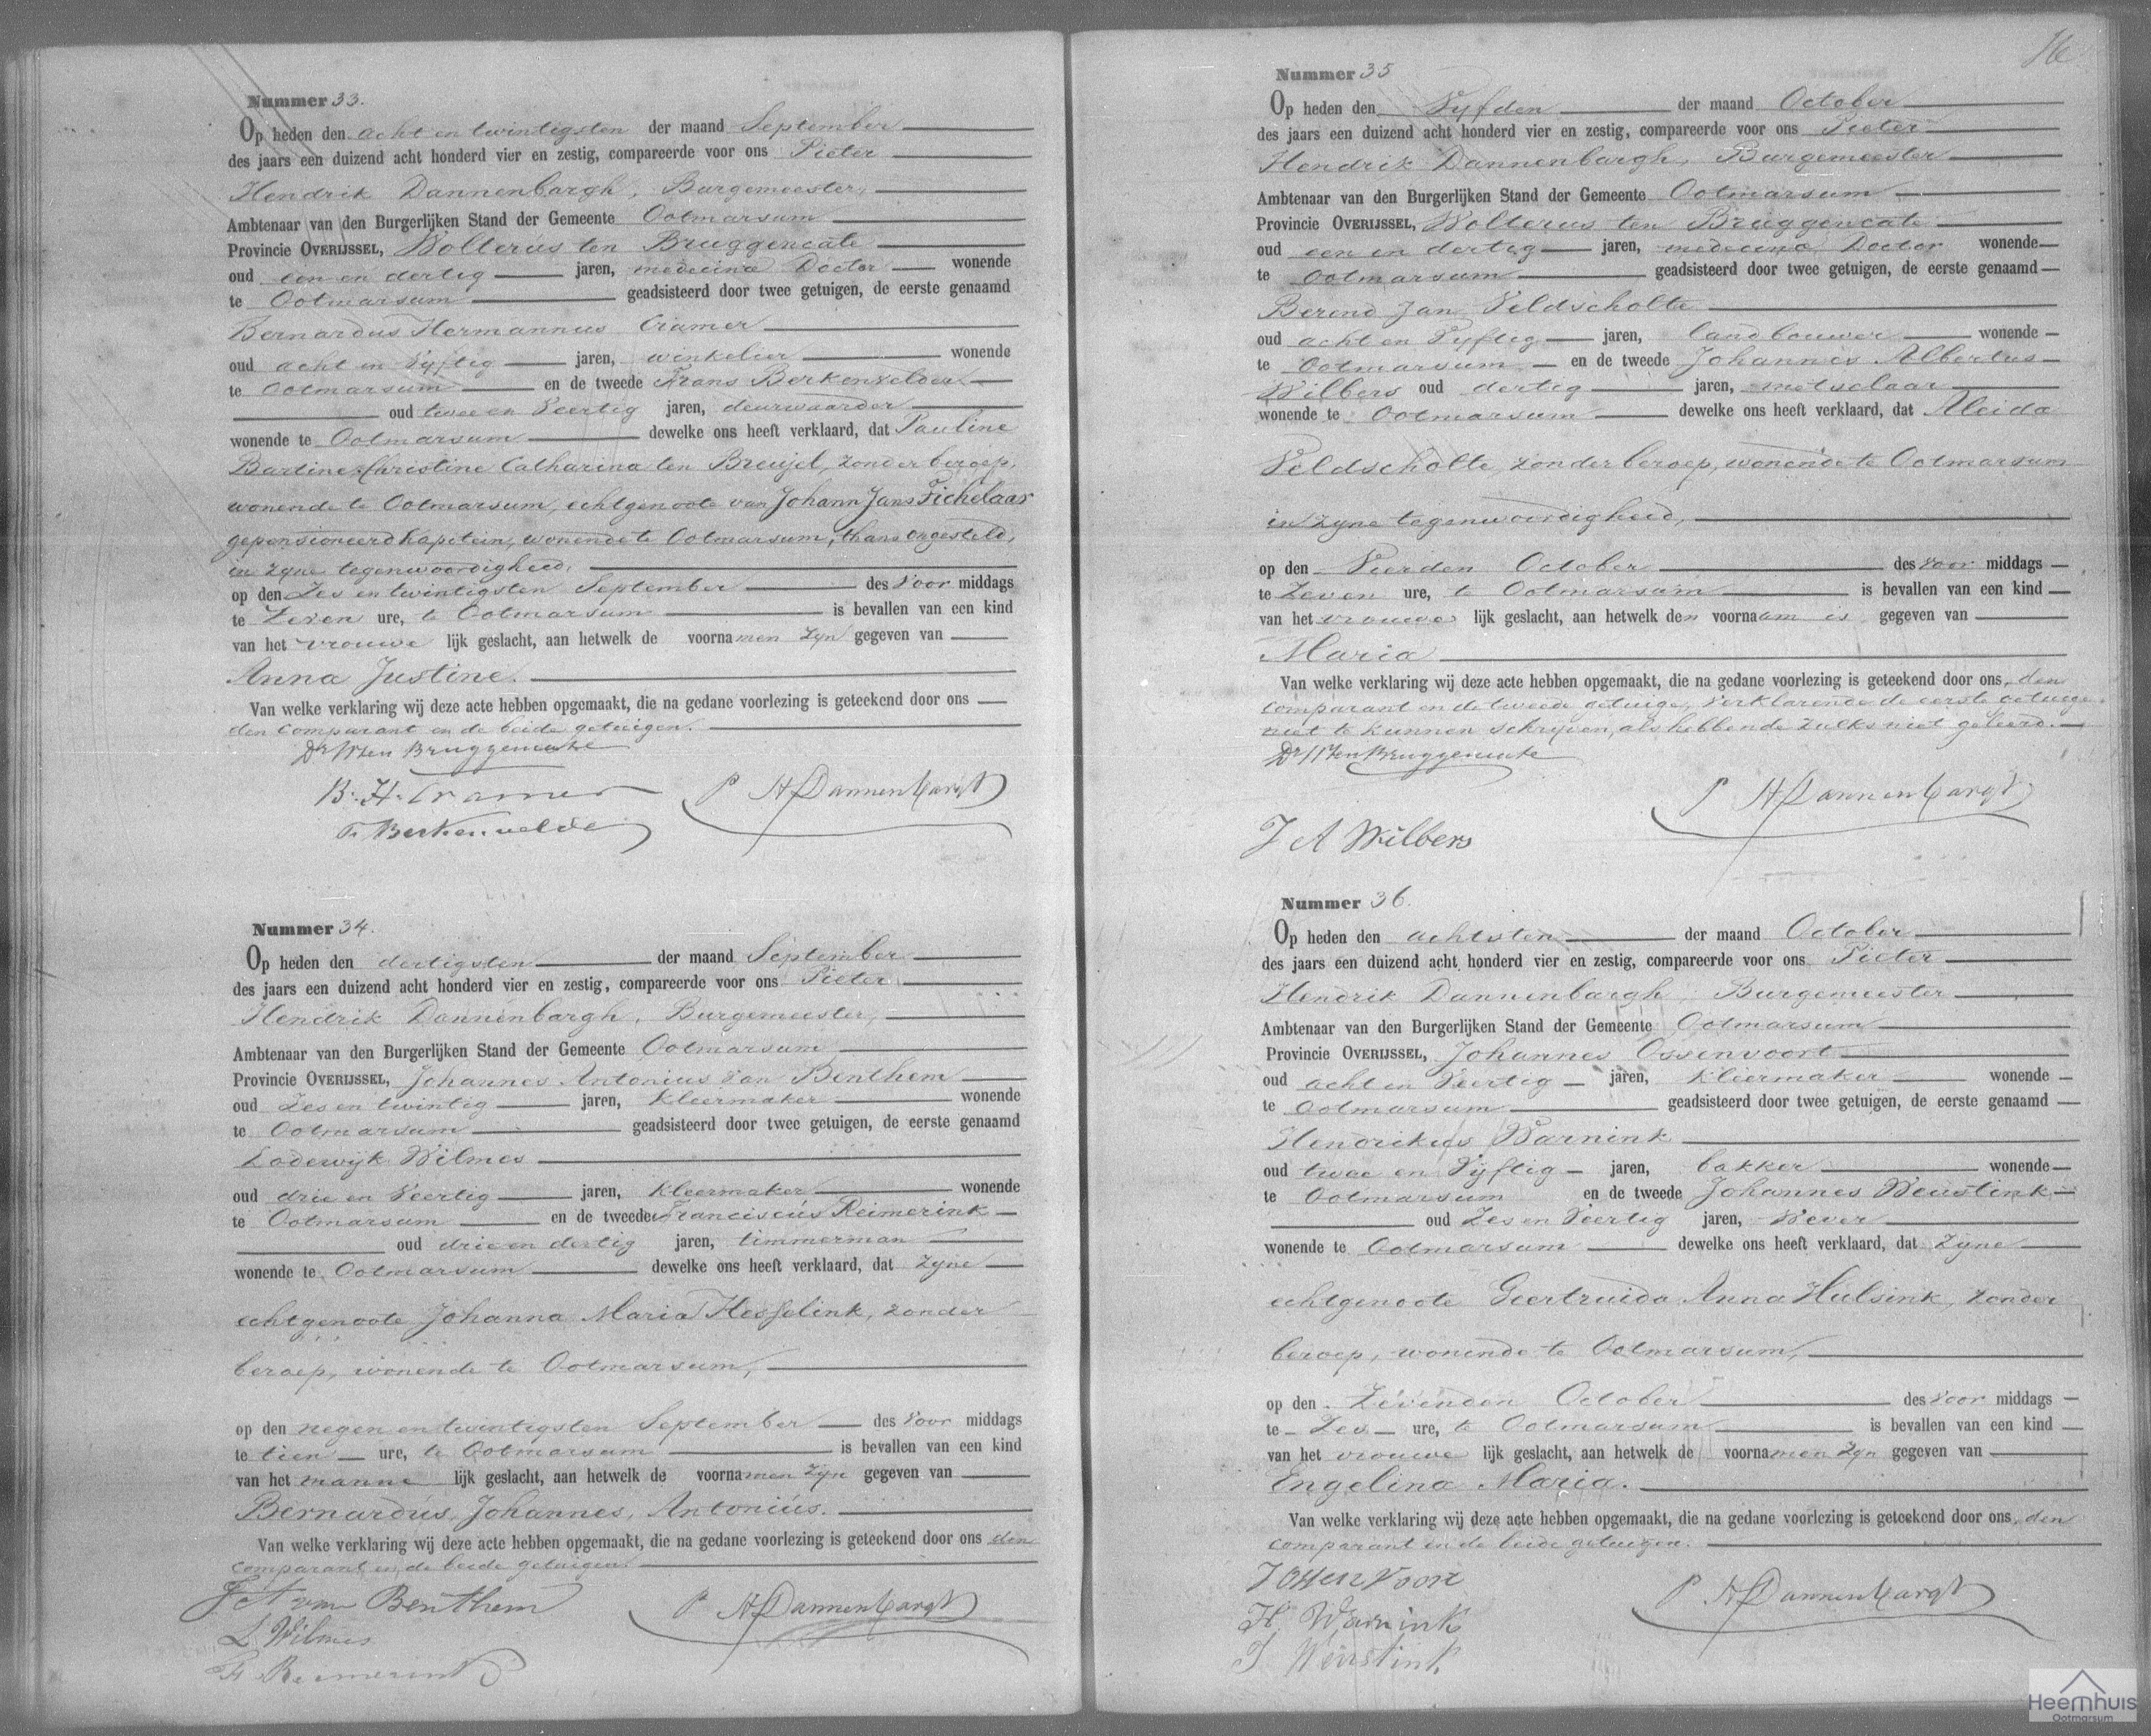 Nummer 33.
Op heden den acht en twintigsten der maand September
des jaars een duizend acht honderd vier en zestig, compareerde voor ons Pieter
Hendrik Dannenbargh, Burgemeester,
Ambtenaar van den Burgerlijken Stand der Gemeente Ootmarsum
Provincie OVERIJSSEL, Wolterus ten Bruggencate
oud een en dertig jaren, medecina Doctor wonende
te Ootmarsum geadsisteerd door twee getuigen, de eerste genaamd
Bernardus Hermannus Cramer
oud acht en Vyftig jaren, winkelier wonende
te Ootmarsum en de tweede Frans Berkenvelder
oud twee en Veertig jaren, deurwaarder
wonende te Ootmarsum dewelke ons heeft verklaard, dat Pauline
Bartine Christine Catharina ten Breujel, zonder beroep,
wonende te Ootmarsum, echtgenoote van Johann Jans Fichelaar
gepensioneerd Kapitein, wonende te Ootmarsum, thans ongesteld,
in zyne tegenwoordigheid,
op den Zes en twintigsten September des Voor middags
te Zeven ure, te Ootmarsum is bevallen van een kind
van het vrouwe lijk geslacht, aan hetwelk de voornamen zyn gegeven van
Anna Justine.
Van welke verklaring wij deze acte hebben opgemaakt, die na gedane voorlezing is geteekend door ons
den comparant en de beide getuigen.
Dr W ten Bruggencate
B. H. Cramer P H Dannenbargh
F. Berkenvelde
Nummer 34.
Op heden den dertigsten der maand September
des jaars een duizend acht honderd vier en zestig, compareerde voor ons Pieter
Hendrik Dannenbargh, Burgemeester,
Ambtenaar van den Burgerlijken Stand der Gemeente Ootmarsum
Provincie OVERIJSSEL, Johannes Antonius Van Benthem
oud Zes en twintig jaren, Kleermaker wonende
te Ootmarsum geadsisteerd door twee getuigen, de eerste genaamd
Lodewyk Wilmes
oud drie en Veertig jaren, Kleermaker wonende
te Ootmarsum en de tweede Franciscus Reimerink
oud drie en dertig jaren, timmerman
wonende te Ootmarsum dewelke ons heeft verklaard, dat zyne
echtgenoote Johanna Maria Hesselink, zonder
beroep, wonende te Ootmarsum,
op den negen en twintigsten September des Voor middags
te tien ure, te Ootmarsum is bevallen van een kind
van het manne lijk geslacht, aan hetwelk de voornamen zyn gegeven van
Bernardus, Johannes, Antonius.
Van welke verklaring wij deze acte hebben opgemaakt, die na gedane voorlezing is geteekend door ons den
comparant en de beide getuigen.
J A van Benthem P H Dannenbargh
L Wilmes
F Reimerink
16
Nummer 35
Op heden den Vyfden der maand October
des jaars een duizend acht honderd vier en zestig, compareerde voor ons Pieter
Hendrik Dannenbargh, Burgemeester
Ambtenaar van den Burgerlijken Stand der Gemeente Ootmarsum
Provincie OVERIJSSEL, Wolterus ten Bruggencate
oud een en dertig jaren, medecina Doctor wonende
te Ootmarsum geadsisteerd door twee getuigen, de eerste genaamd
Berend Jan Veldscholte
oud acht en Vyftig jaren, landbouwer wonende
te Ootmarsum en de tweede Johannes Albertus
Wilbers oud dertig jaren, metselaar
wonende te Ootmarsum dewelke ons heeft verklaard, dat Aleida
Veldscholte, zonder beroep, wonende te Ootmarsum
in zyne tegenwoordigheid,
op den Vierden October des Voor middags
te Zeven ure, te Ootmarsum is bevallen van een kind
van het vrouwe lijk geslacht, aan hetwelk den voornaam is gegeven van
Maria
Van welke verklaring wij deze acte hebben opgemaakt, die na gedane voorlezing is geteekend door ons, den
comparant en de tweede getuige, verklarende de eerste getuige
niet te kunnen schryven, als hebbende zulks niet geleerd.
Dr W ten Bruggencate
P H Dannenbargh
J A Wilbers
Nummer 36.
Op heden den achtsten der maand October
des jaars een duizend acht honderd vier en zestig, compareerde voor ons Pieter
Hendrik Dannenbargh, Burgemeester
Ambtenaar van den Burgerlijken Stand der Gemeente Ootmarsum
Provincie OVERIJSSEL, Johannes Ossenvoort
oud acht en Veertig jaren, Kleermaker wonende
te Ootmarsum geadsisteerd door twee getuigen, de eerste genaamd
Hendrikus Warnink
oud twee en Vyftig jaren, bakker wonende
te Ootmarsum en de tweede Johannes Weustink
oud Zes en Veertig jaren, Wever
wonende te Ootmarsum dewelke ons heeft verklaard, dat zyne
echtgenoote Geertruida Anna Hulsink, zonder
beroep, wonende te Ootmarsum,
op den Zevenden October des Voor middags
te Zes ure, te Ootmarsum is bevallen van een kind
van het vrouwe lijk geslacht, aan hetwelk de voornamen zyn gegeven van
Engelina Maria.
Van welke verklaring wij deze acte hebben opgemaakt, die na gedane voorlezing is geteekend door ons, den
comparant en de beide getuigen.
J Ossenvoort P H Dannenbargh
H. Warnink
J Weustink
Heemhuis
Ootmarsum